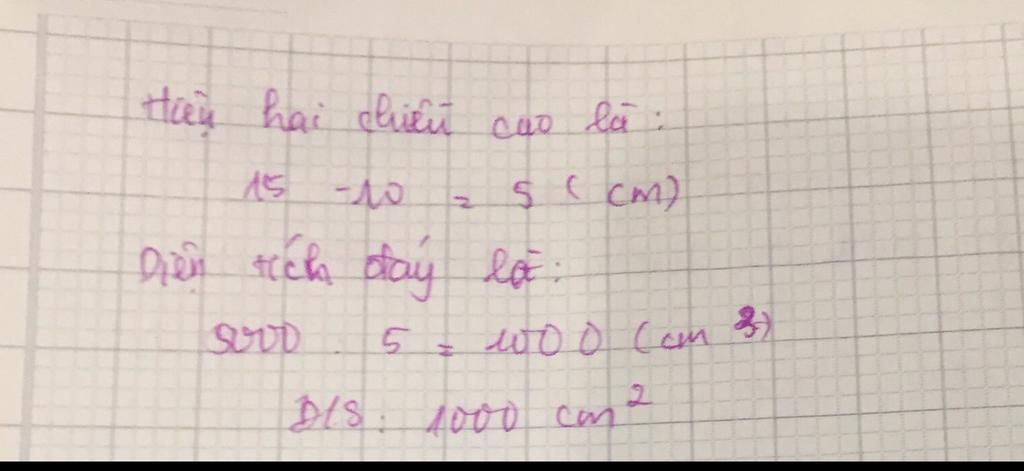 Hiệu hai chiều cao là:
15 - 10 = 5 (cm)
Diện tích đáy là:
5000 : 5 = 1000 (cm 2)
Đ/S: 1000 cm²